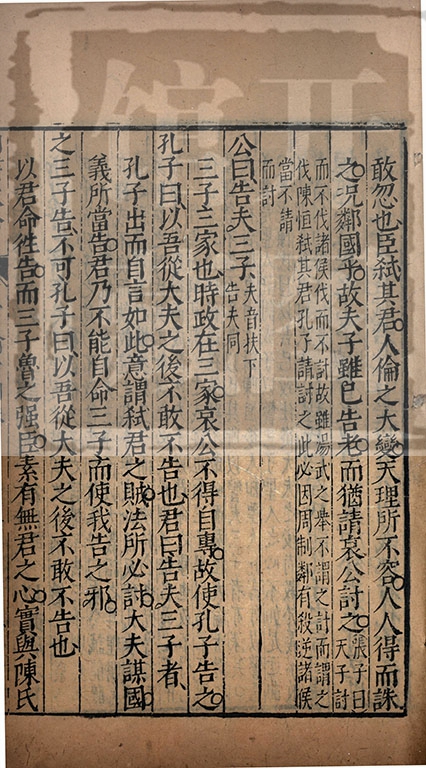 敢忽也臣弑其君人倫之大變天理所不容人人得而誅
之况鄰國乎故夫子雖已告老而猶請哀公討之張子曰天子討
而不伐諸侯伐而不討故雖湯武之舉不謂之討而謂之
伐陳恒弑其君孔子請討之此必因周制鄰有殺逆諸候
當不請
而討
公曰告夫三子夫音扶下告夫同
三子三家也時政在三家哀公不得自專故使孔子告之
孔子曰以吾從大夫之後不敢不告也君曰告夫三子者
孔子出而自言如此意謂弑君之賊法所必討大夫謀國
義所當告君乃不能自命三子而使我告之邪
之三子告不可孔子曰以吾從大夫之後不敢不告也
以君命徃告而三子魯之强臣素有無君之心實與陳氏